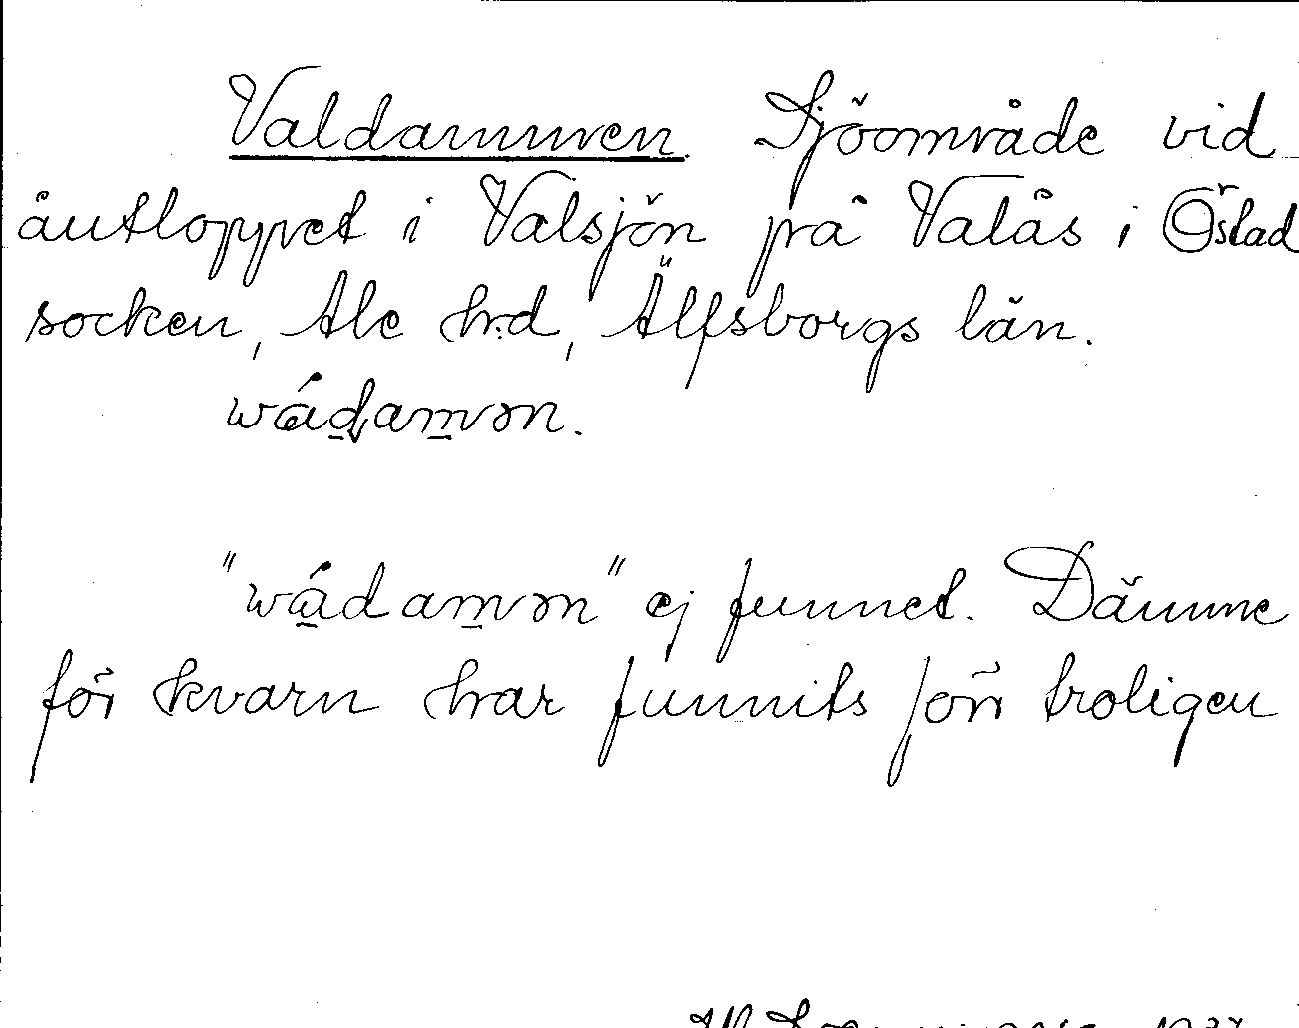 Valdammen. Sjöområde vid
åutloppet i Valsjön på Valås i Östad
socken, Ale hrd, Älfsborgs län.
wádamən.
"wádamən" ej funnet. Dämme
för kvarn har funnits förr troligen